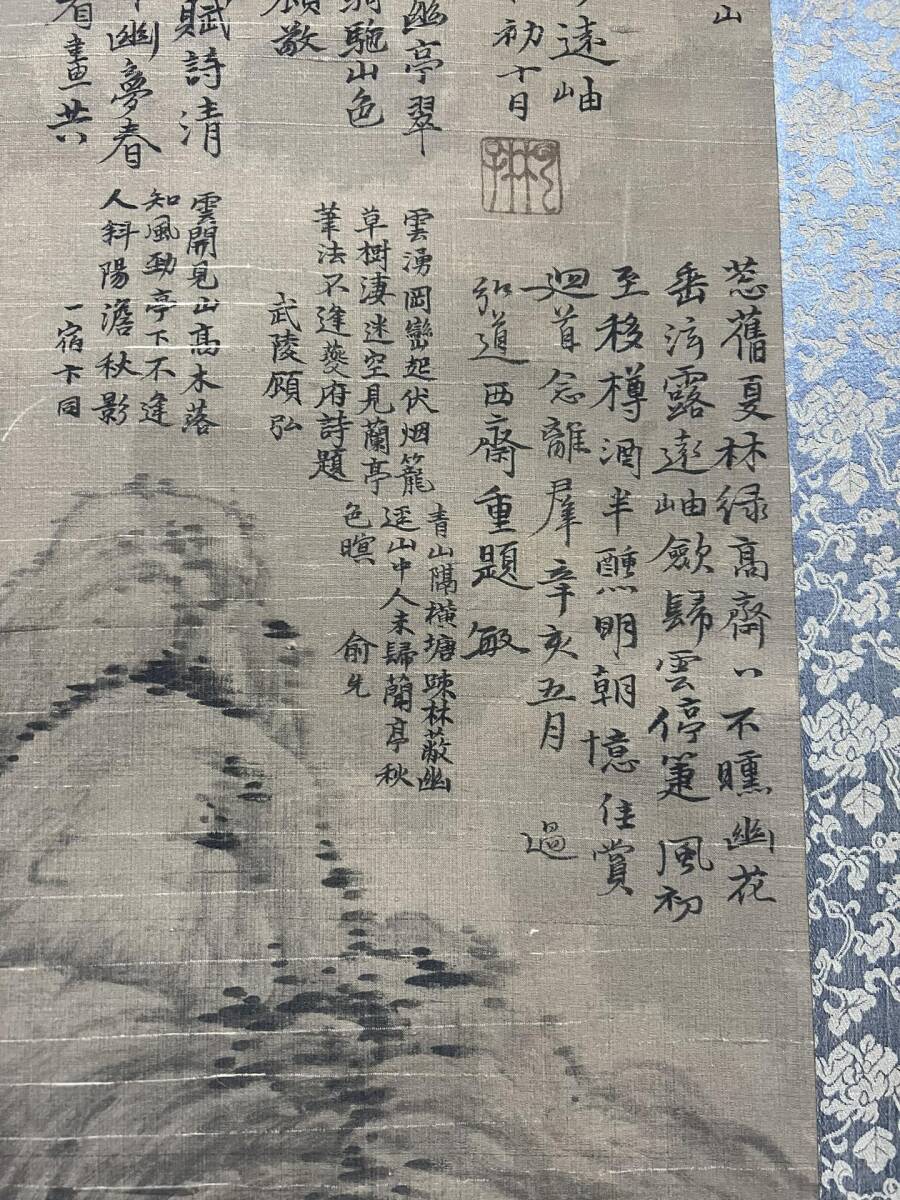 山
遠岫
初十日
幽亭翠
駞山色
顧敬
賦詩清
幽夢春
看畫共
蕊舊夏林緑高齋〻不曛幽花
垂涼露遠岫歛歸雲停箑風初
至移樽酒半醺明朝憶佳賞
迴首念離羣辛亥五月 過
弘道西齋重題敏
雲湧岡巒起伏烟籠
草樹淒迷空見蘭亭
筆法不逢夔府詩題
武陵顧弘
青山隔横塘踈林蔽幽
逕山中人未歸蘭亭秋
色暝 俞允
雲開見山高木落
知風勁亭下不逢
人斜陽澹秋影
一宿卞同